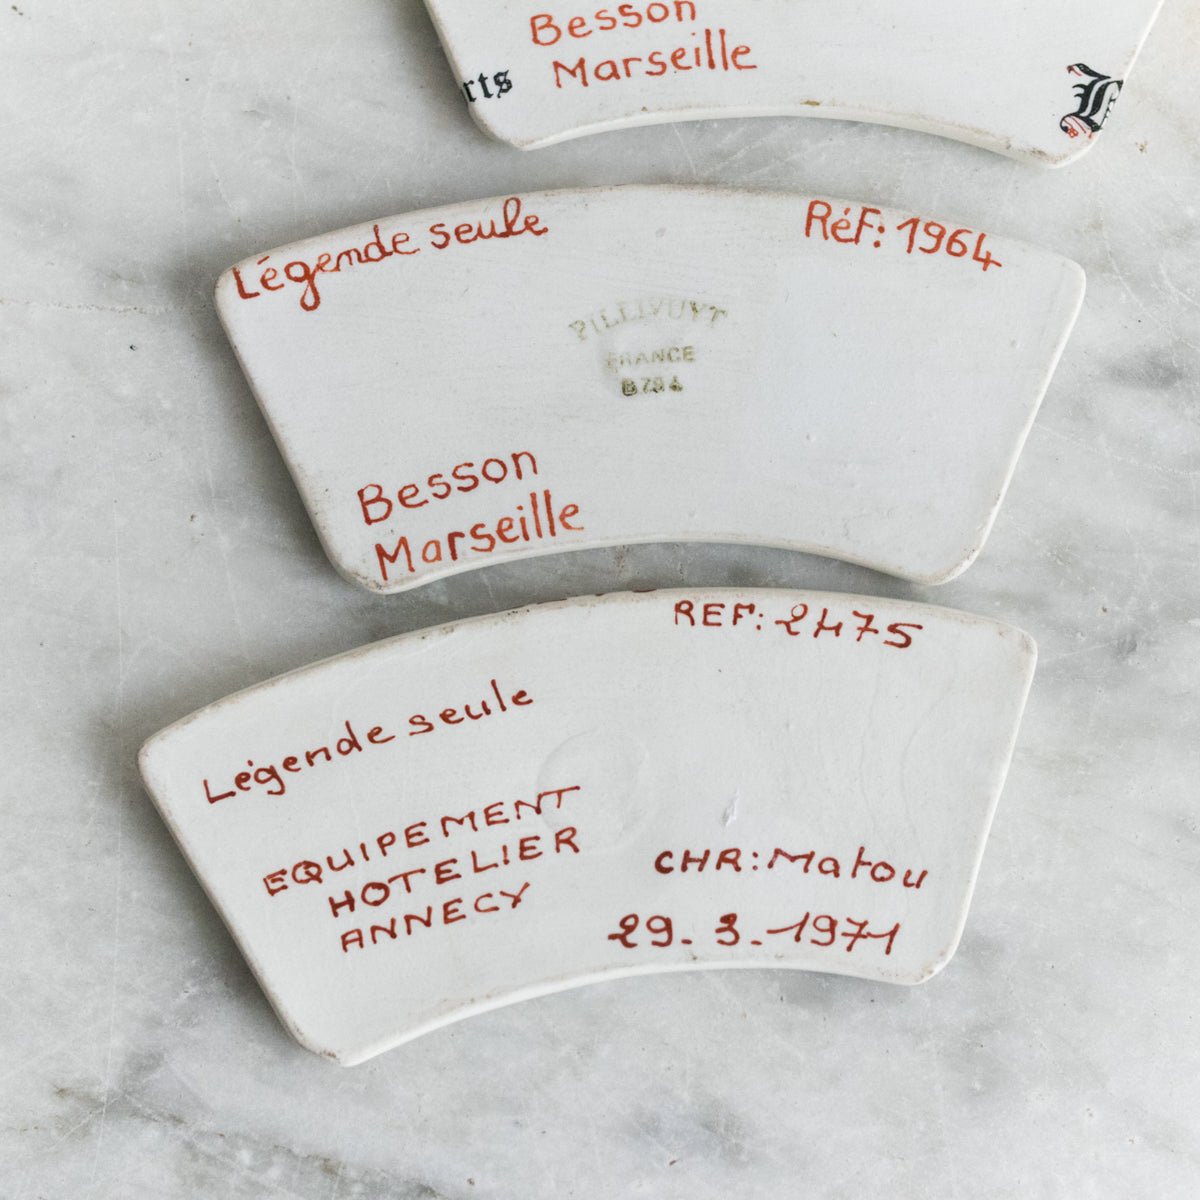 Besson
Marseille
rts
Légende seule
Réf: 1964
PILLIVUYT
FRANCE
Besson
Marseille
REF: 2475
Légende seule
EQUIPEMENT
HOTELIER
ANNECY
CHR: Matou
29. 3. 1971